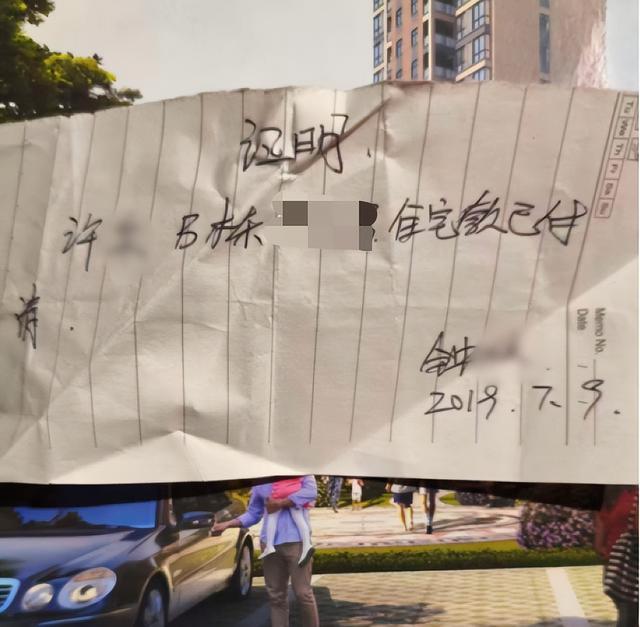 证明.
许 B栋 住宅款已付
清.
2019.7.9.
Memo No.
Date
Tu We Th Fr Sa Su